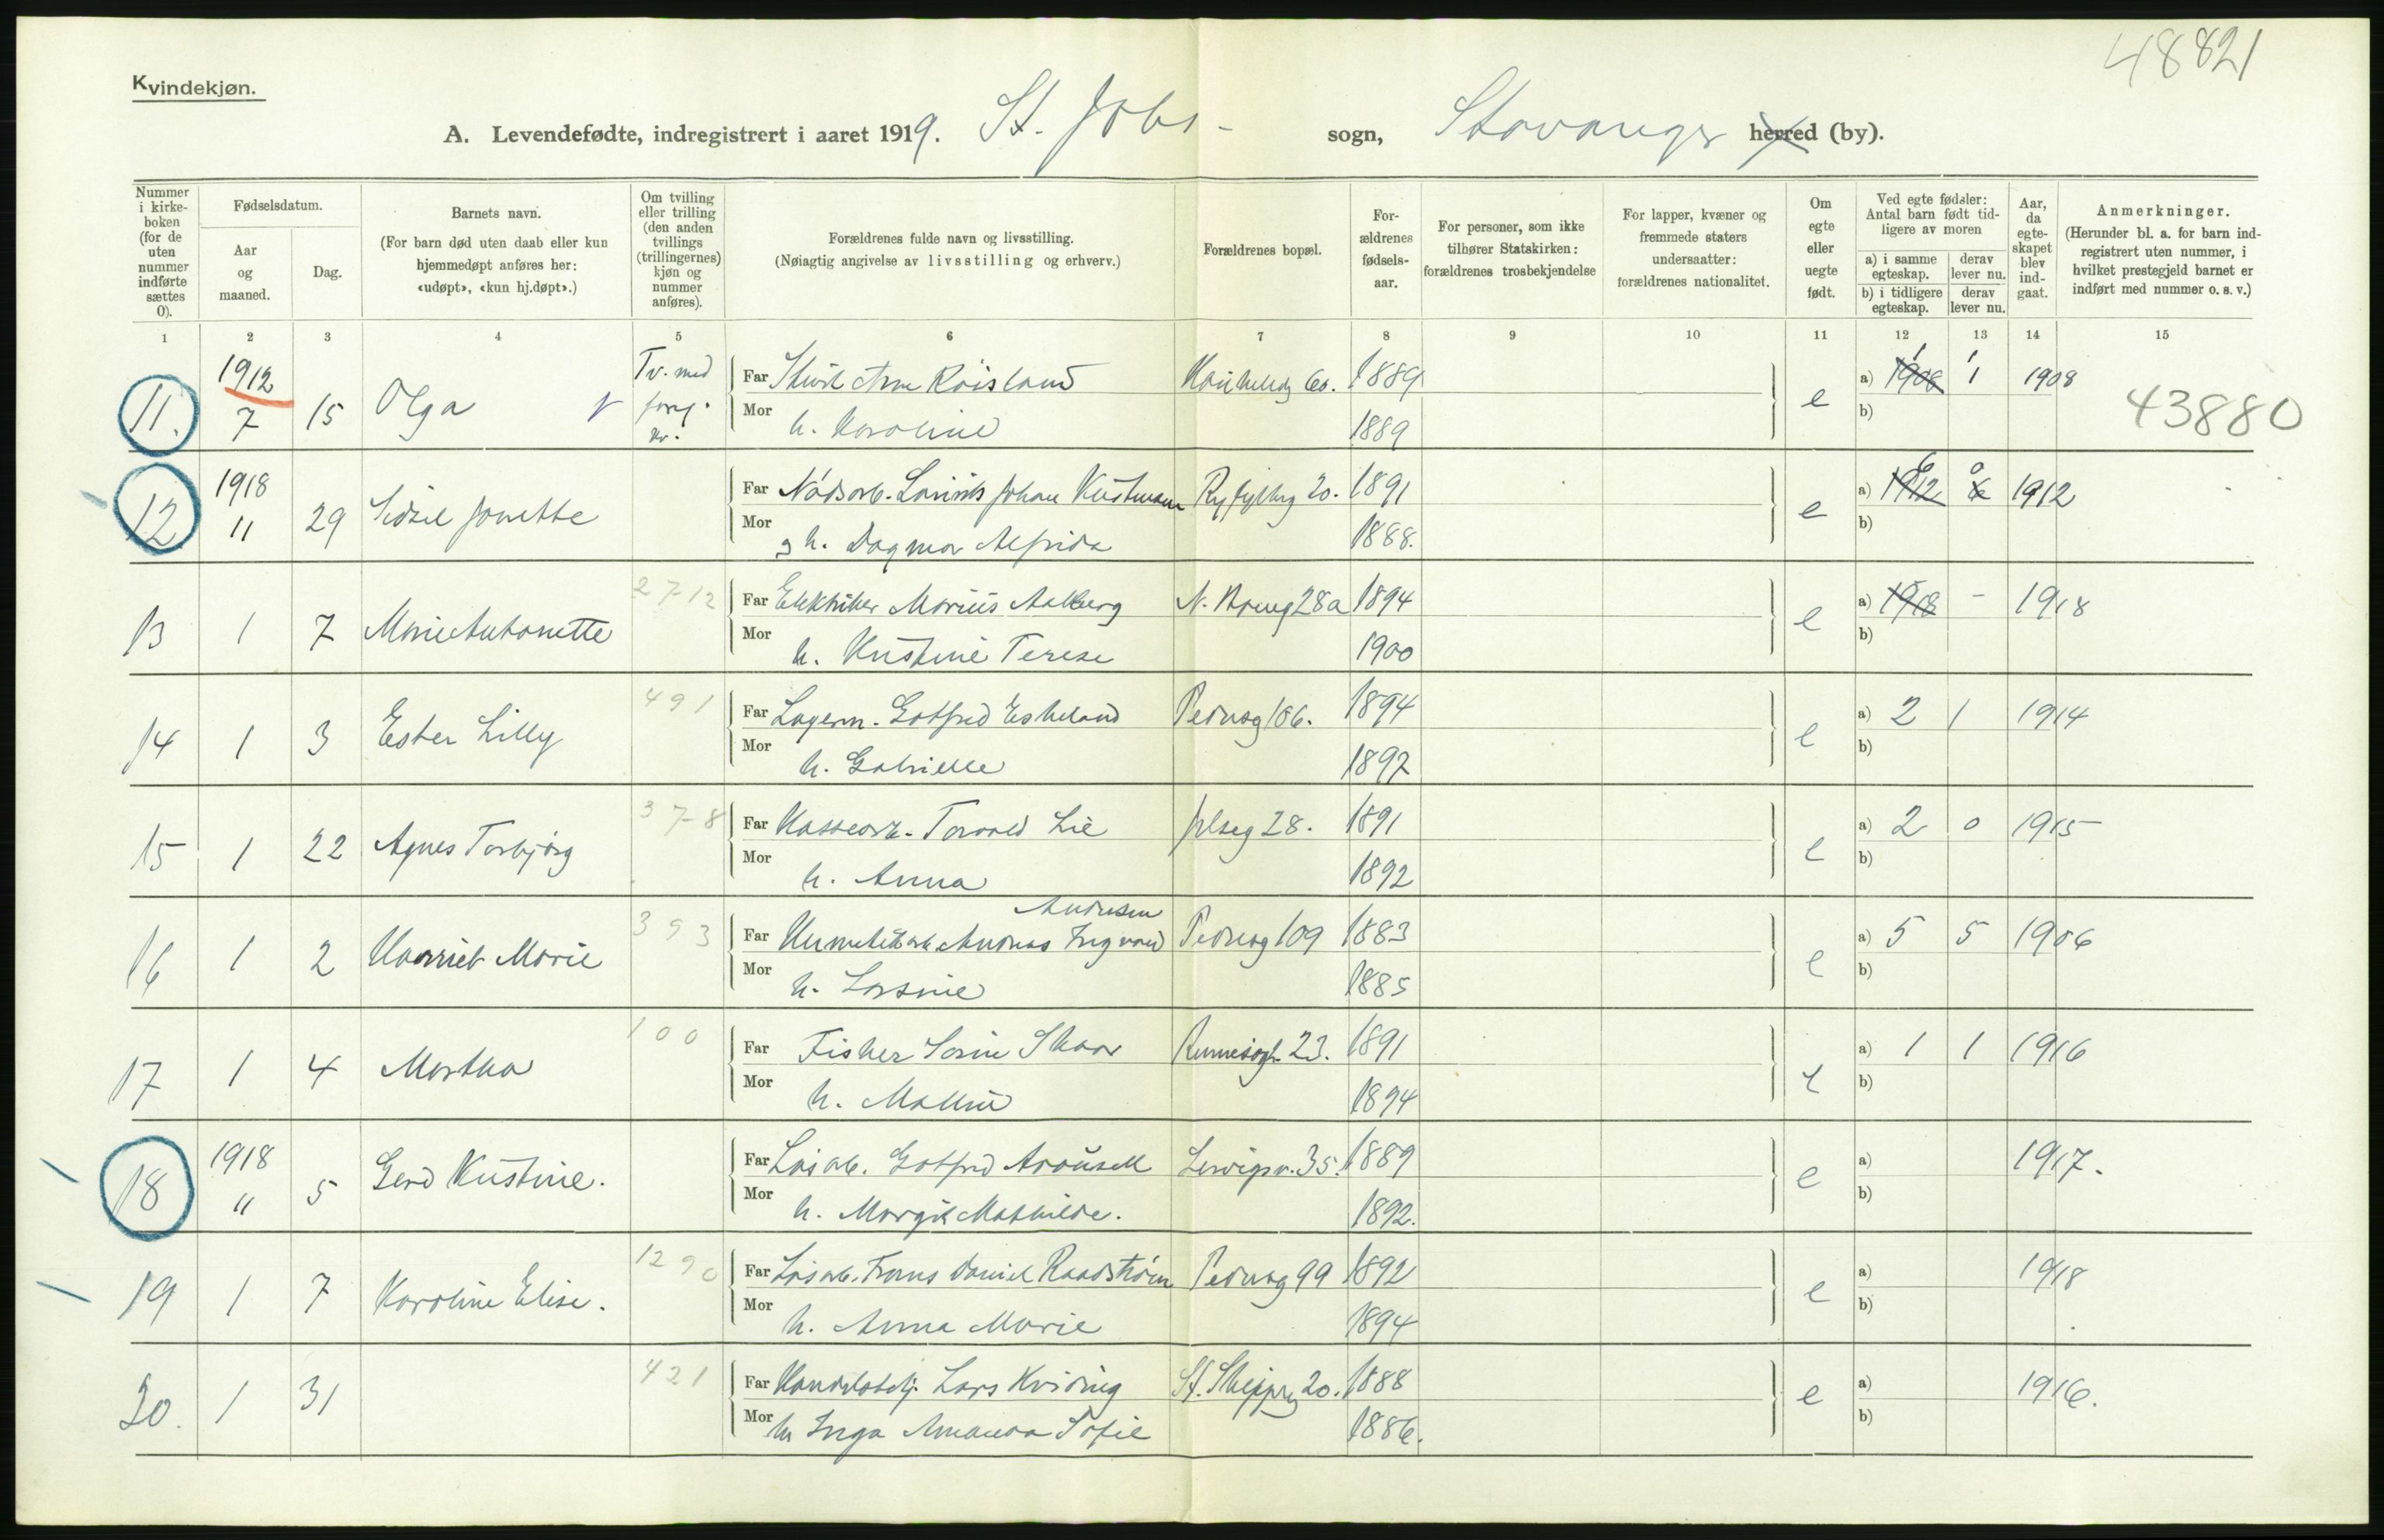 48821
Kvindekjøn.
A. Levendefødte, indregistrert i aaret 1919. St. Johs- sogn, Stavanger herred (by).
Nummer i kirkeboken (for de uten nummer indførte sættes 0).
Fødselsdatum.
Aar og maaned.
Dag.
Barnets navn.
(For barn død uten daab eller kun hjemmedøpt anføres her: «udøpt», «kun hj.døpt».)
Om tvilling eller trilling (den anden tvillings (trillingernes) kjøn og nummer anføres).
Forældrenes fulde navn og livsstilling.
(Nøiagtig angivelse av livsstilling og erhverv.)
Forældrenes bopæl.
Forældrenes fødselsaar.
For personer, som ikke tilhører Statskirken: forældrenes trosbekjendelse
For lapper, kvæner og fremmede staters undersaatter: forældrenes nationalitet.
Om egte eller uegte født.
Ved egte fødsler: Antal barn født tidligere av moren
a) i samme egteskap. derav lever nu.
b) i tidligere egteskap. derav lever nu.
Aar, da egteskapet blev indgaat.
Anmerkninger.
(Herunder bl. a. for barn indregistrert uten nummer, i hvilket prestegjeld barnet er indført med nummer o. s. v.)
1 2 3 4 5 6 7 8 9 10 11 12 13 14 15
11. 1912 7 15 Olga Tv. med Far Arne Roisland 60. 1889 e a) 1908 1 1 1 1908 43880
Mor h. Karoline 1889 b)
12 1918 11 29 Sidsel Jonette Far Johan 20. 1891 e a) 1912 0 1912
Mor h. Dagmar Alfrida 1888. b)
13 1 7 Marie Antonette 2712 Far Elektriker Marius Aalberg 28a 1894 e a) 1918 - 1918
Mor h. Kristine Terese 1900 b)
14 1 3 Ester Lilly 491 Far Lagerm. Gotfred Eskeland Pedersg 106. 1894 e a) 2 1 1914
Mor h. Gabrielle 1892 b)
15 1 22 Agnes Torbjørg 378 Far Torvald Lie 28. 1891 e a) 2 0 1915
Mor h. Anna 1892 b)
16 1 2 Harriet Marie 393 Far Andreas Ingvald Andersen Pedersg 109 1883 e a) 5 5 1906
Mor h. Larsine 1885 b)
17 1 4 Martha 100 Far Fisker Skaar 23. 1891 e a) 1 1 1916
Mor h. Malline 1894 b)
18 1918 11 5 Gerd Kristine. Far Løsarb. Gotfred 35. 1889 e a) 1917.
Mor h. Margit Mathilde. 1892. b)
19 1 7 Karoline Elise. 1290 Far Løsarb. Frans Daniel Raadstrøm Pedersg 99 1892 e a) 1918
Mor h. Anna Marie 1894 b)
20. 1 31 421 Far Lars Kviding St. Skipprg 20. 1888 e a) 1916.
Mor h Inga Amanda Sofie 1886. b)